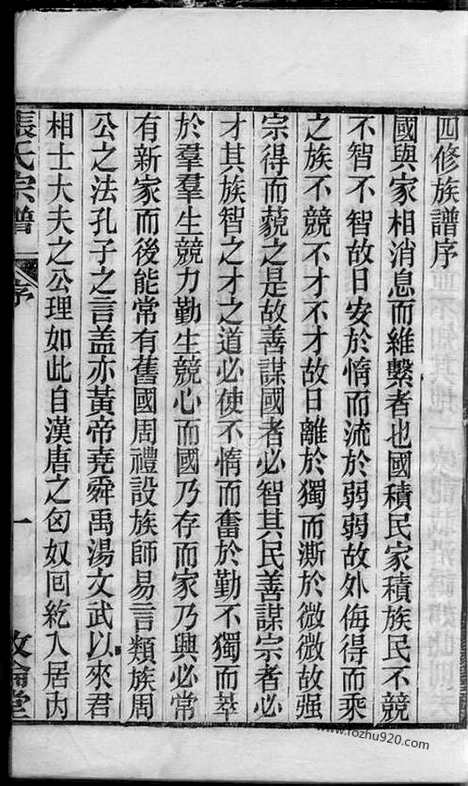 四修族譜序
國與家相消息而維繫者也國積民家積族民不競
不智不智故日安於惰而流於弱弱故外侮得而乘
之族不競不才不才故日離於獨而澌於微微故强
宗得而藐之是故善謀國者必智其民善謀宗者必
才其族智之才之道必使不惰而奮於勤不獨而萃
於羣羣生競力勤生競心而國乃存而家乃興必常
有新家而後能常有舊國周禮設族師易言類族周
公之法孔子之言盖亦黃帝堯舜禹湯文武以來君
相士大夫之公理如此自漢唐之匈奴回紇入居内
張氏宗譜 序 一 敦倫堂
www.rozhu920.com